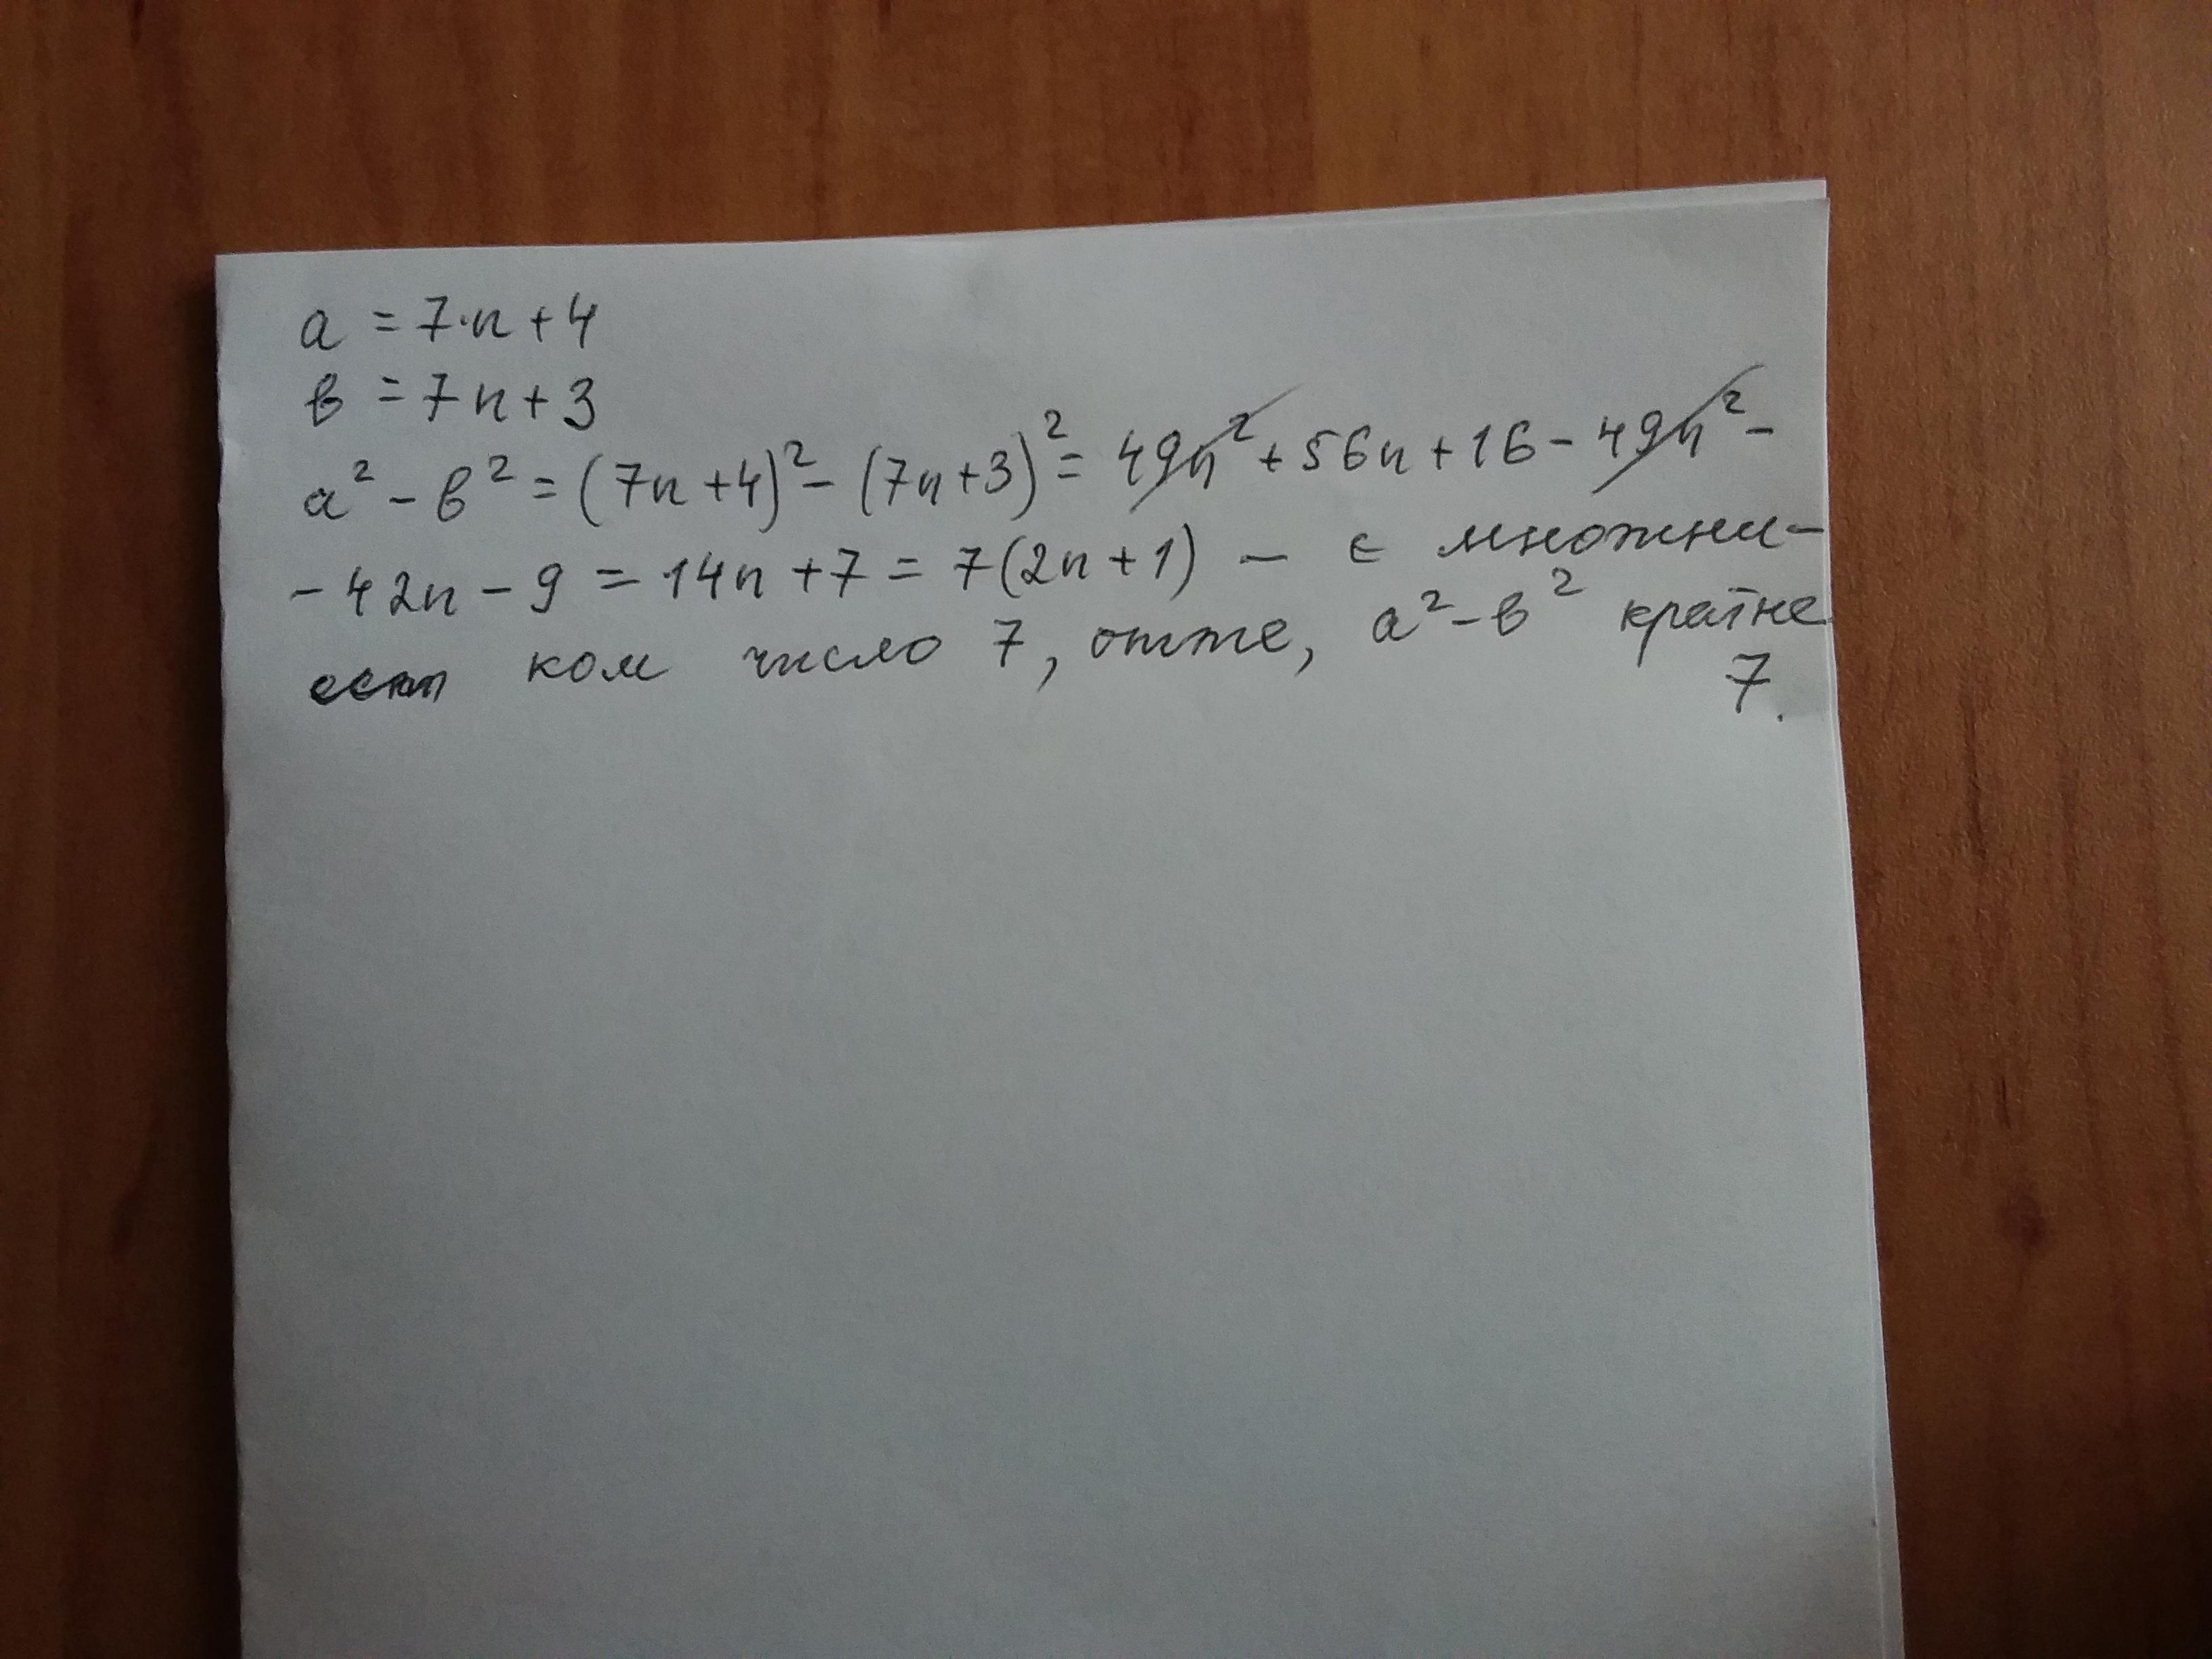 a = 7·n + 4
в = 7n + 3
a² - в² = (7n + 4)² - (7n + 3)² = 49n² + 56n + 16 - 49n² -
- 42n - 9 = 14n + 7 = 7(2n + 1) - є множни-
ком число 7, отже, a² - в² кратне
7.